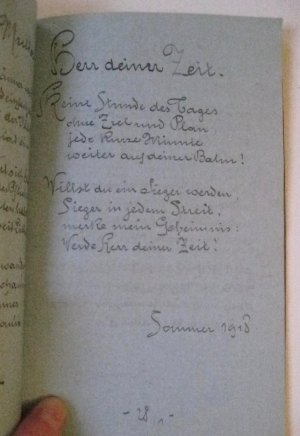 Herr deiner Zeit.
Keine Stunde des Tages
ohne Ziel und Plan
jede kurze Minute
weiter auf deiner Bahn!
Willst du ein Sieger werden
Sieger in jedem Streit,
merke mein Geheimnis:
Werde Herr deiner Zeit!
Sommer 1918
- 28 -